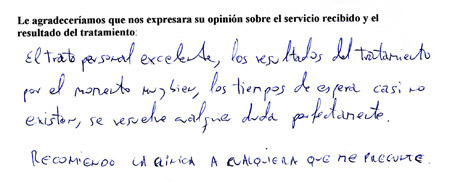 Le agradeceríamos que nos expresara su opinión sobre el servicio recibido y el
resultado del tratamiento:
El trato personal excelente, los resultados del tratamiento
por el momento muy bien, los tiempos de espera casi no
existen, se resuelve cualquier duda perfectamente.
RECOMIENDO LA CLÍNICA A CUALQUIERA QUE ME PREGUNTE.